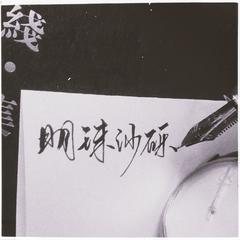 明珠沙砾
綫·